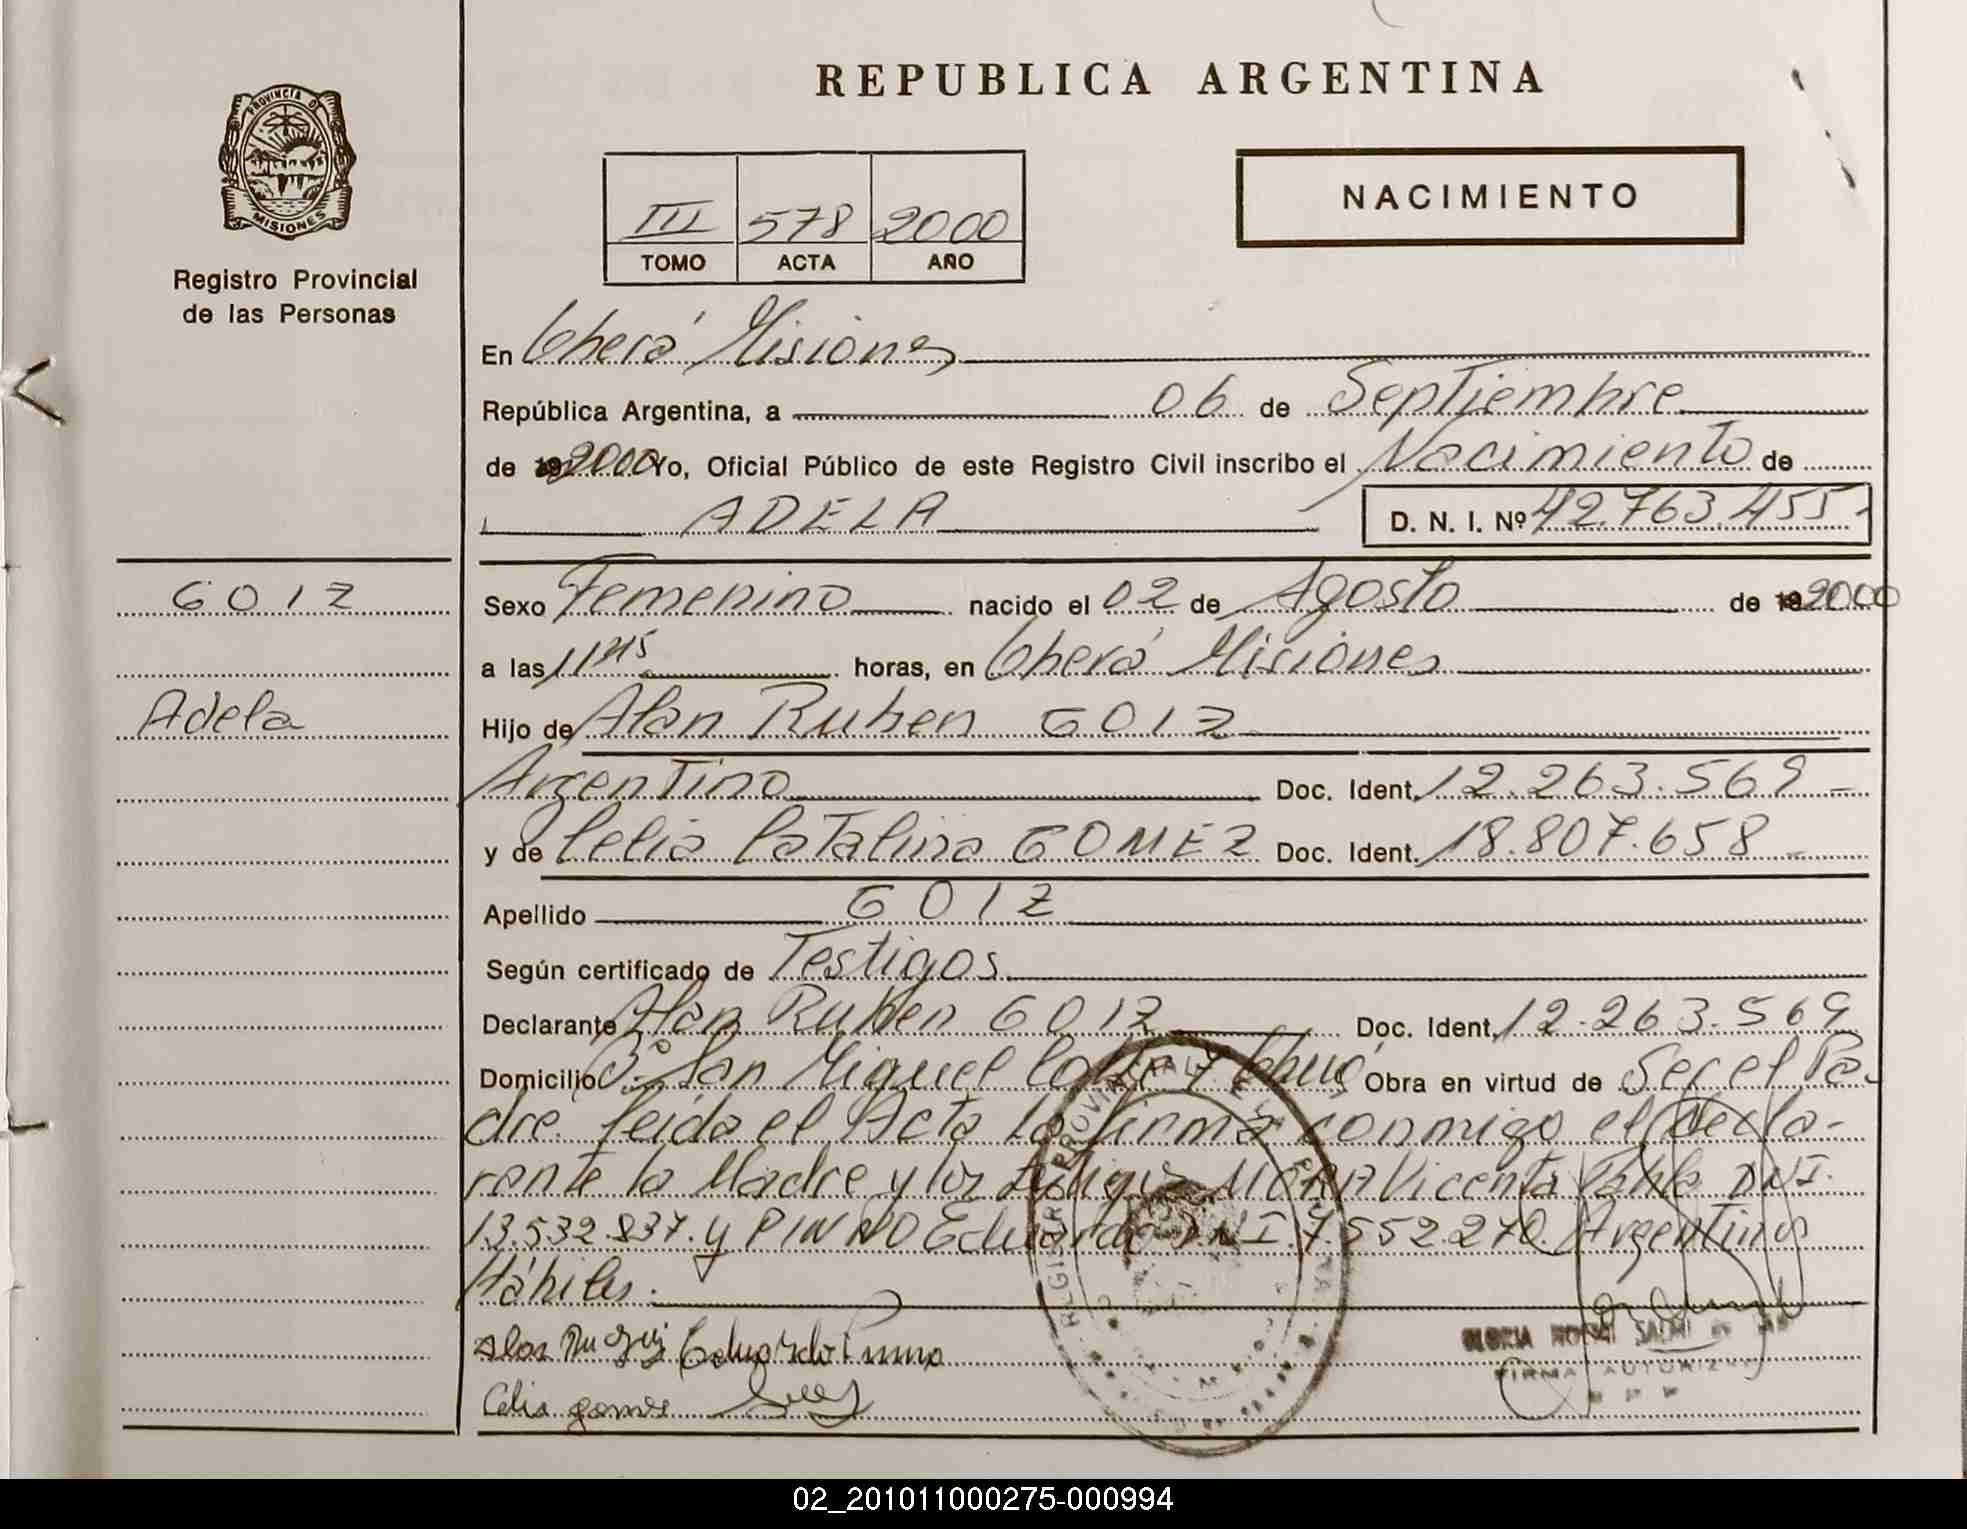 PROVINCIA DE
MISIONES
Registro Provincial
de las Personas
REPUBLICA ARGENTINA
NACIMIENTO
III 578 2000
TOMO ACTA AÑO
En Oberá Misiones
República Argentina, a 06 de Septiembre
de 2000 Yo, Oficial Público de este Registro Civil inscribo el Nacimiento de
ADELA D. N. I. Nº 42.763.455.-
GOIZ
Adela
Sexo Femenino nacido el 02 de Agosto de 2000
a las 11 45 horas, en Oberá Misiones
Hijo de Alan Ruben GOIZ
Argentino Doc. Ident. 12.263.569 -
y de Celia Catalina GOMEZ Doc. Ident. 18.807.658 -
Apellido GOIZ
Según certificado de Testigos
Declarante Alan Ruben GOIZ Doc. Ident. 12.263.569
Domicilio Bº San Miguel Obra en virtud de Ser el Pa-
dre. leida el Acta la firma conmigo el decla-
rante la Madre y los testigos MORA Vicenta DNI.
13.532.837. y PINNO Eduardo DNI. 7.552.270. Argentinos
Hábiles.
Eduardo Pinno
Celia gomes
GLORIA
FIRMA AUTORIZ
02_201011000275-000994